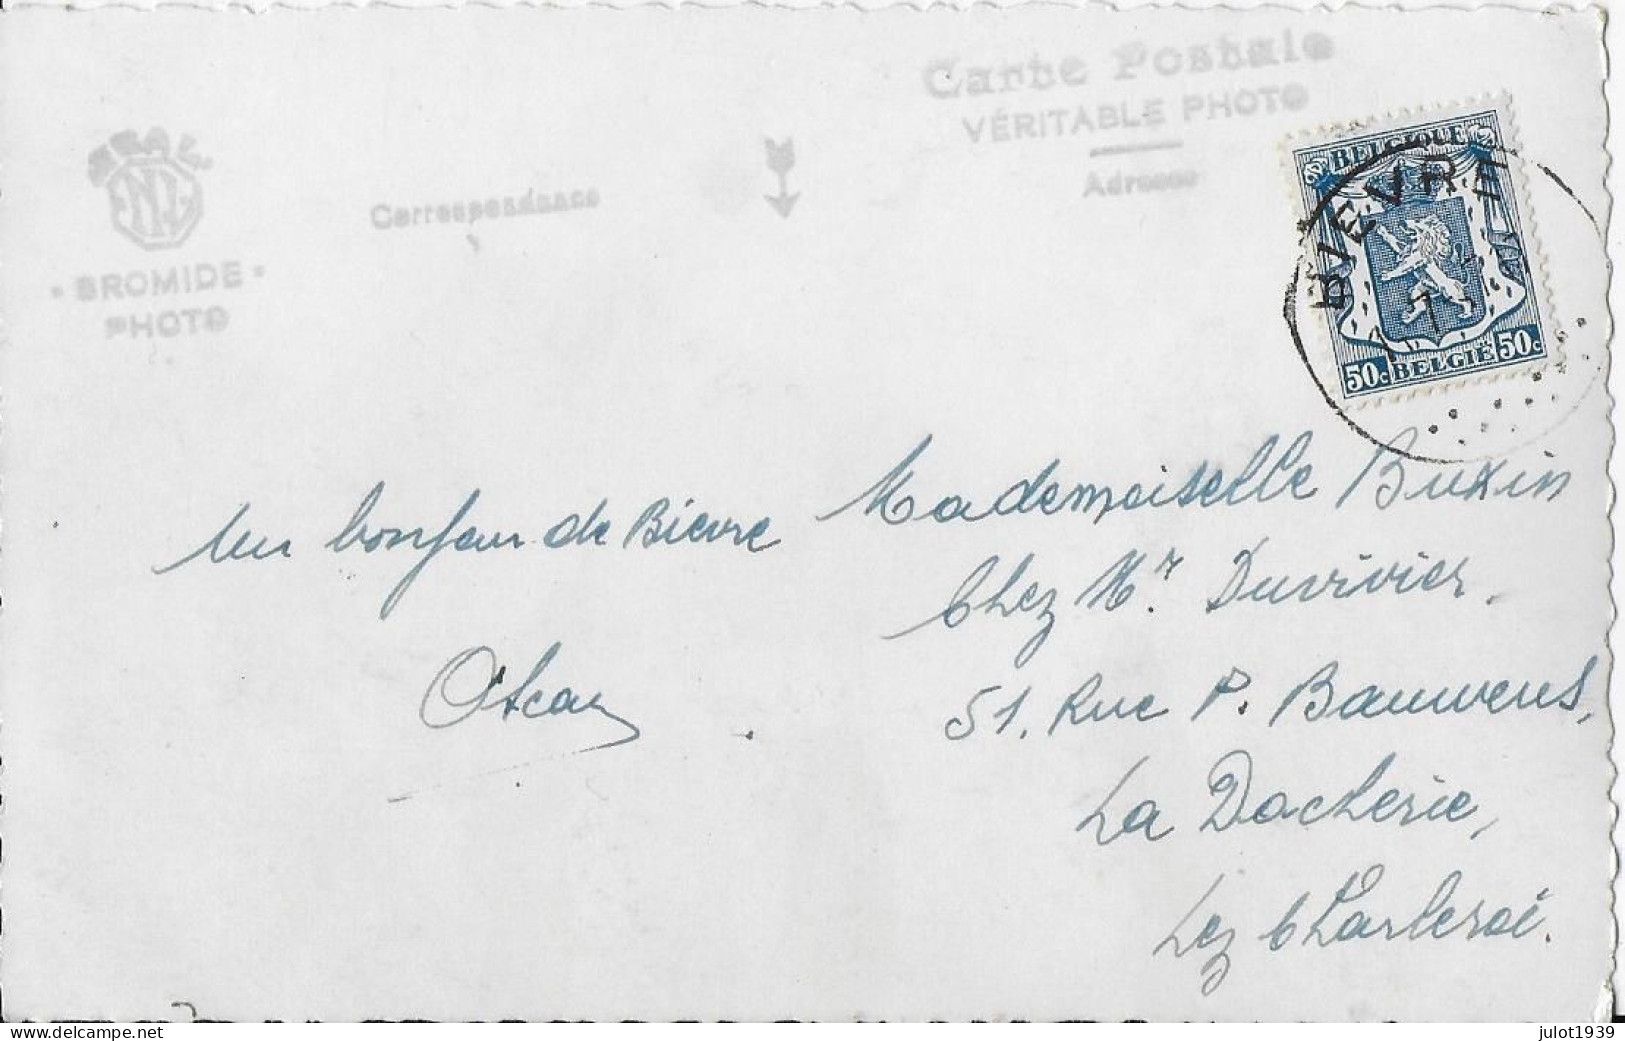 Carte Postale
VÉRITABLE PHOTO
Adresse
Correspondance
• BROMIDE •
PHOTO
BELGIQUE
BIEVRE
50c BELGIË 50c
Un bonjour de Bievre
Oscar
Mademoiselle Buxin
Chez Mr. Duvivier.
51. Rue P. Bauwens,
La Docherie,
Lez Charleroi.
delcampe.net
julot1939